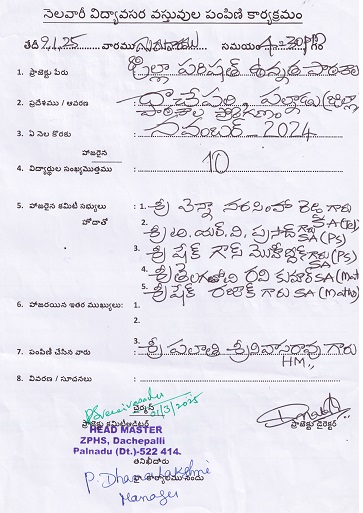 నెలవారీ విద్యావసర వస్తువుల పంపిణి కార్యక్రమం
తేదీ 9.1.25 వారము గురువారం సమయం 4-30 గం
1. ప్రాజెక్టు పేరు జిల్లా పరిషత్ ఉన్నత పాఠశాల
2. ప్రదేశము / ఆవరణ దాచేపల్లి, పల్నాడు జిల్లా
పాఠశాల ప్రాంగణం
3. ఏ నెల కొరకు నవంబర్ - 2024
హాజరైన
4. విద్యార్థుల సంఖ్య మొత్తము 10
5. హాజరైన కమిటీ సభ్యులు : 1. శ్రీ వెన్నా నరసింహా రెడ్డి గారు
హోదాతో SA(Te)
2. శ్రీ ఆ. యర్. వి. ప్రసాద్ గారు SA(PS)
3. శ్రీ షేక్ గౌస్ మొహిద్దీన్ గారు SA (PS)
4. శ్రీ తెలగతోటి రవి కుమార్ SA (Mat
5. శ్రీ షేక్ రజాక్ గారు SA (Maths)
6. హాజరయిన ఇతర ముఖ్యులు: 1.
2.
3.
7. పంపిణి చేసిన వారు : శ్రీ పులాతి శ్రీనివాసరావు గారు
HM.,
8. వివరణ / సూచనలు :
చైర్మన్ 21/3/2025
ప్రాజెక్టు కమిటీ ఆడిటర్ ప్రాజెక్టు డైరెక్టర్
HEAD MASTER
ZPHS, Dachepalli
Palnadu (Dt.)-522 414.
తనిఖీదారు
P. Dhana Lakshmi
Manager